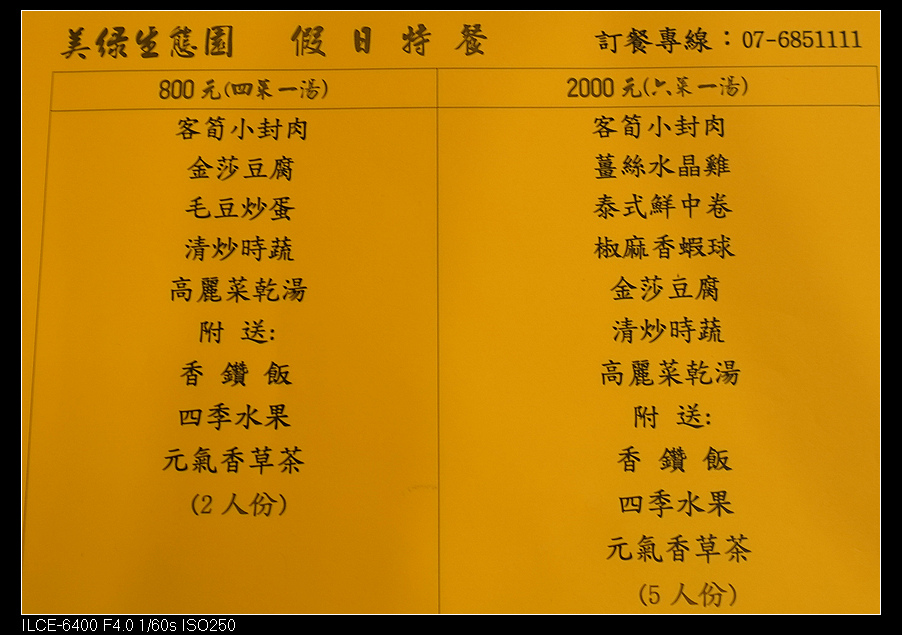 美綠生態園 假日特餐 訂餐專線：07-6851111
800 元(四菜一湯)
客筍小封肉
金莎豆腐
毛豆炒蛋
清炒時蔬
高麗菜乾湯
附 送:
香 鑽 飯
四季水果
元氣香草茶
(2 人份)
2000 元(六菜一湯)
客筍小封肉
薑絲水晶雞
泰式鮮中卷
椒麻香蝦球
金莎豆腐
清炒時蔬
高麗菜乾湯
附 送:
香 鑽 飯
四季水果
元氣香草茶
(5 人份)
ILCE-6400 F4.0 1/60s ISO250